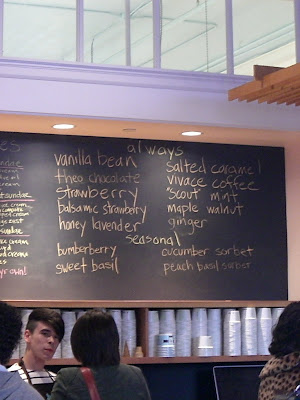 always
vanilla bean
theo chocolate
strawberry
balsamic strawberry
honey lavender
salted caramel
vivace coffee
"scout" mint
maple walnut
ginger
seasonal
bumberberry
sweet basil
cucumber sorbet
peach basil sorbet